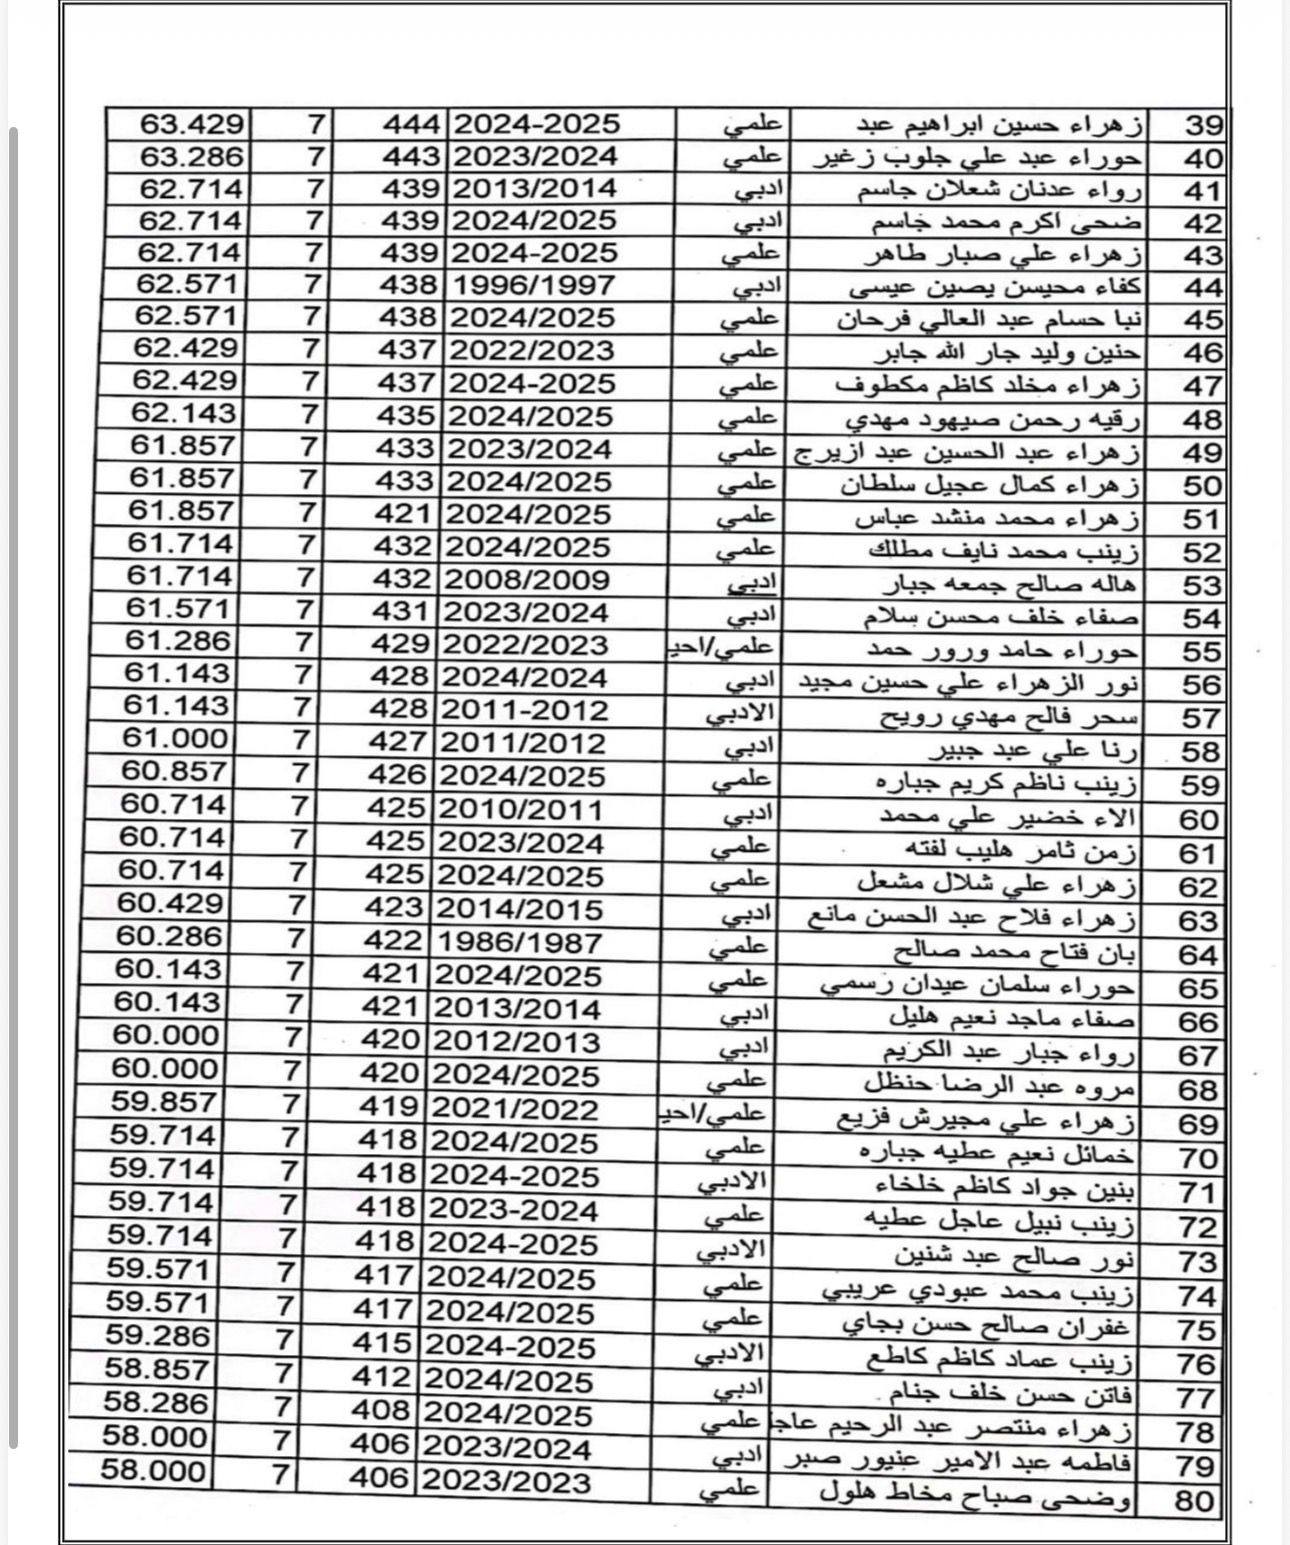 39 زهراء حسين ابراهيم عبد علمي 2024-2025 444 7 63.429
40 حوراء عبد علي جلوب زغير علمي 2023/2024 443 7 63.286
41 رواء عدنان شعلان جاسم ادبي 2013/2014 439 7 62.714
42 ضحى اكرم محمد جاسم ادبي 2024/2025 439 7 62.714
43 زهراء علي صبار طاهر علمي 2024-2025 439 7 62.714
44 كفاء محيسن يصين عيسى ادبي 1996/1997 438 7 62.571
45 نبا حسام عبد العالي فرحان علمي 2024/2025 438 7 62.571
46 حنين وليد جار الله جابر علمي 2022/2023 437 7 62.429
47 زهراء مخلد كاظم مكطوف علمي 2024-2025 437 7 62.429
48 رقيه رحمن صيهود مهدي علمي 2024/2025 435 7 62.143
49 زهراء عبد الحسين عبد ازيرج علمي 2023/2024 433 7 61.857
50 زهراء كمال عجيل سلطان علمي 2024/2025 433 7 61.857
51 زهراء محمد منشد عباس علمي 2024/2025 421 7 61.857
52 زينب محمد نايف مطلك علمي 2024/2025 432 7 61.714
53 هاله صالح جمعه جبار ادبي 2008/2009 432 7 61.714
54 صفاء خلف محسن سلام ادبي 2023/2024 431 7 61.571
55 حوراء حامد ورور حمد علمي/احيـ 2022/2023 429 7 61.286
56 نور الزهراء علي حسين مجيد ادبي 2024/2024 428 7 61.143
57 سحر فالح مهدي رويح الادبي 2011-2012 428 7 61.143
58 رنا علي عبد جبير ادبي 2011/2012 427 7 61.000
59 زينب ناظم كريم جباره علمي 2024/2025 426 7 60.857
60 الاء خضير علي محمد ادبي 2010/2011 425 7 60.714
61 زمن ثامر هليب لفته علمي 2023/2024 425 7 60.714
62 زهراء علي شلال مشعل علمي 2024/2025 425 7 60.714
63 زهراء فلاح عبد الحسن مانع ادبي 2014/2015 423 7 60.429
64 بان فتاح محمد صالح علمي 1986/1987 422 7 60.286
65 حوراء سلمان عيدان رسمي علمي 2024/2025 421 7 60.143
66 صفاء ماجد نعيم هليل ادبي 2013/2014 421 7 60.143
67 رواء جبار عبد الكريم ادبي 2012/2013 420 7 60.000
68 مروه عبد الرضا حنظل علمي 2024/2025 420 7 60.000
69 زهراء علي مجيرش فزيع علمي/احيـ 2021/2022 419 7 59.857
70 خمائل نعيم عطيه جباره علمي 2024/2025 418 7 59.714
71 بنين جواد كاظم خلخاء الادبي 2024-2025 418 7 59.714
72 زينب نبيل عاجل عطيه علمي 2023-2024 418 7 59.714
73 نور صالح عبد شنين الادبي 2024-2025 418 7 59.714
74 زينب محمد عبودي عريبي علمي 2024/2025 417 7 59.571
75 غفران صالح حسن بجاي علمي 2024/2025 417 7 59.571
76 زينب عماد كاظم كاطع الادبي 2024-2025 415 7 59.286
77 فاتن حسن خلف جنام ادبي 2024/2025 412 7 58.857
78 زهراء منتصر عبد الرحيم عاجل علمي 2024/2025 408 7 58.286
79 فاطمه عبد الامير عنيور صبر ادبي 2023/2024 406 7 58.000
80 وضحى صباح مخاط هلول علمي 2023/2023 406 7 58.000